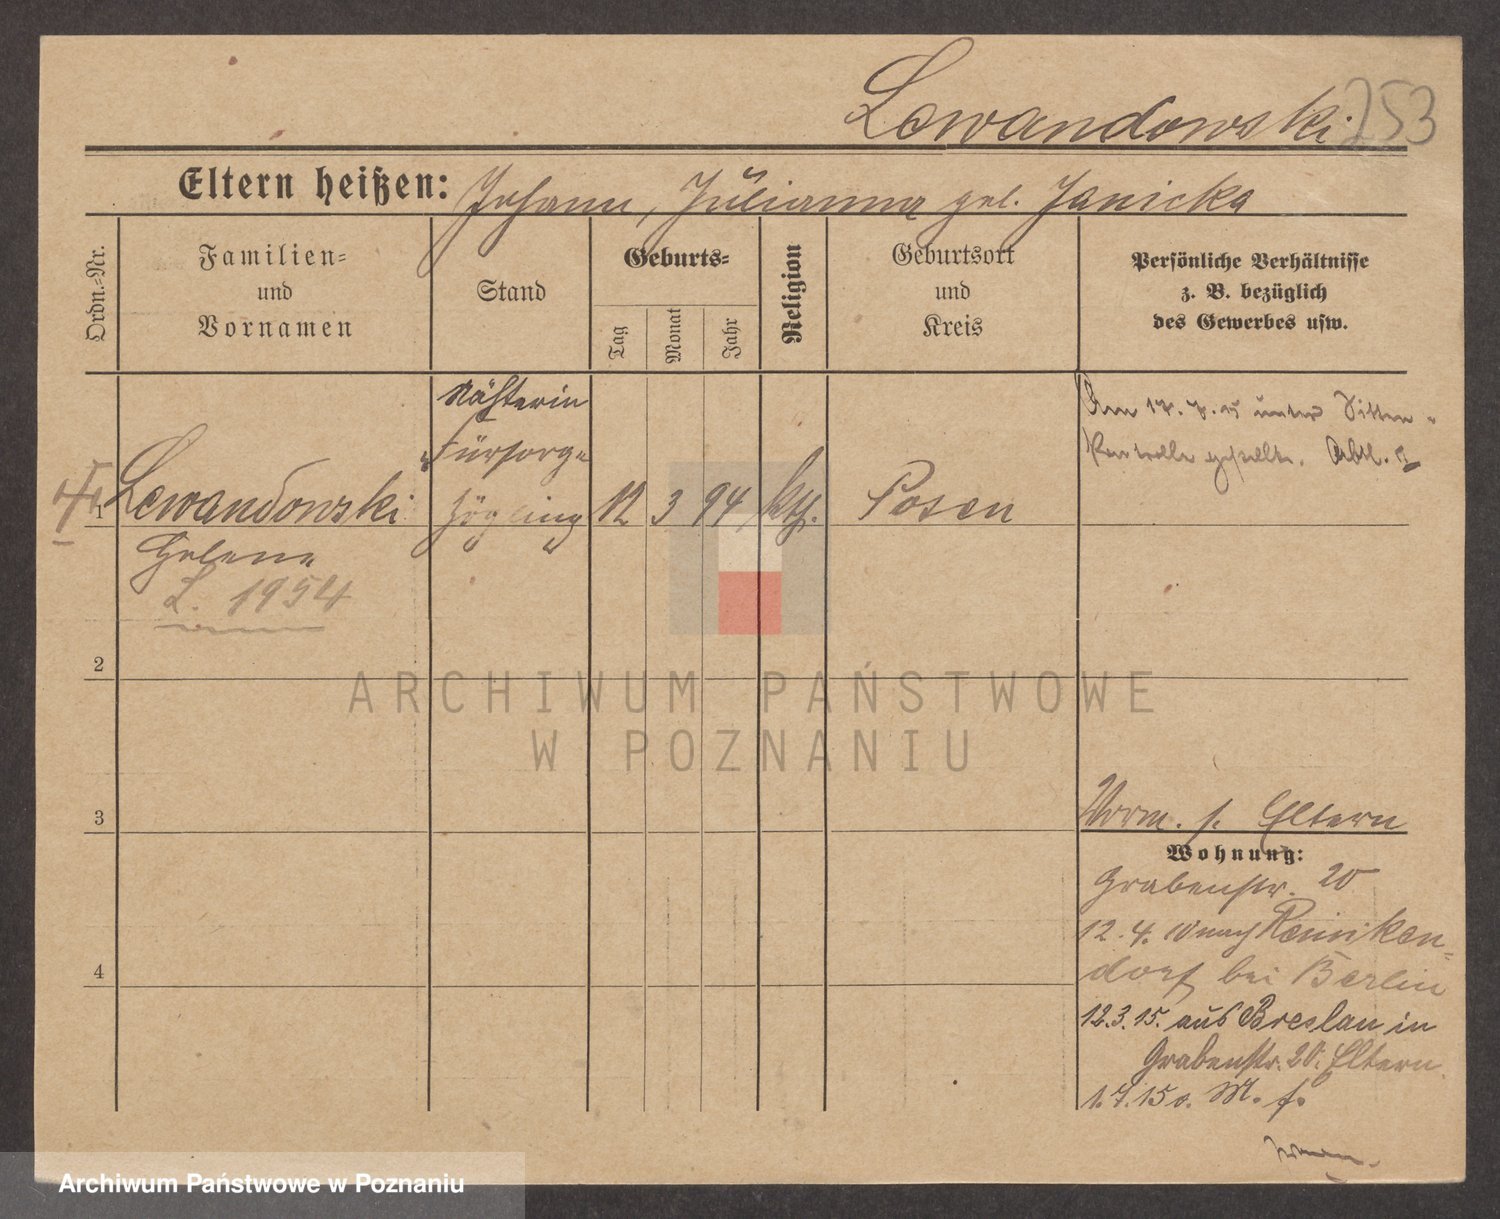 Lewandowski 253
Eltern heißen: Johann, Julianna geb. Janicka
Ordn.-Nr.
Familien-
und
Vornamen
Stand
Geburts-
Tag
Monat
Jahr
Religion
Geburtsort
und
Kreis
Persönliche Verhältnisse
z. B. bezüglich
des Gewerbes usw.
1
Lewandowski
Helene
L. 1954
Nähterin
Fürsorge
Zögling
12 3 94 kth. Posen
Am 17. 7. 15 unter Sitten-
Kontrolle gestellt. Abtl.
2
3
4
Vorm. s. Eltern
Wohnung:
Grabenstr. 20
12. 4. 10 nach Reiniken-
dorf bei Berlin
12.3.15. aus Breslau in
Grabenstr. 20. Eltern
1.7.15 o. M. f.
ARCHIWUM PAŃSTWOWE
W POZNANIU
Archiwum Państwowe w Poznaniu